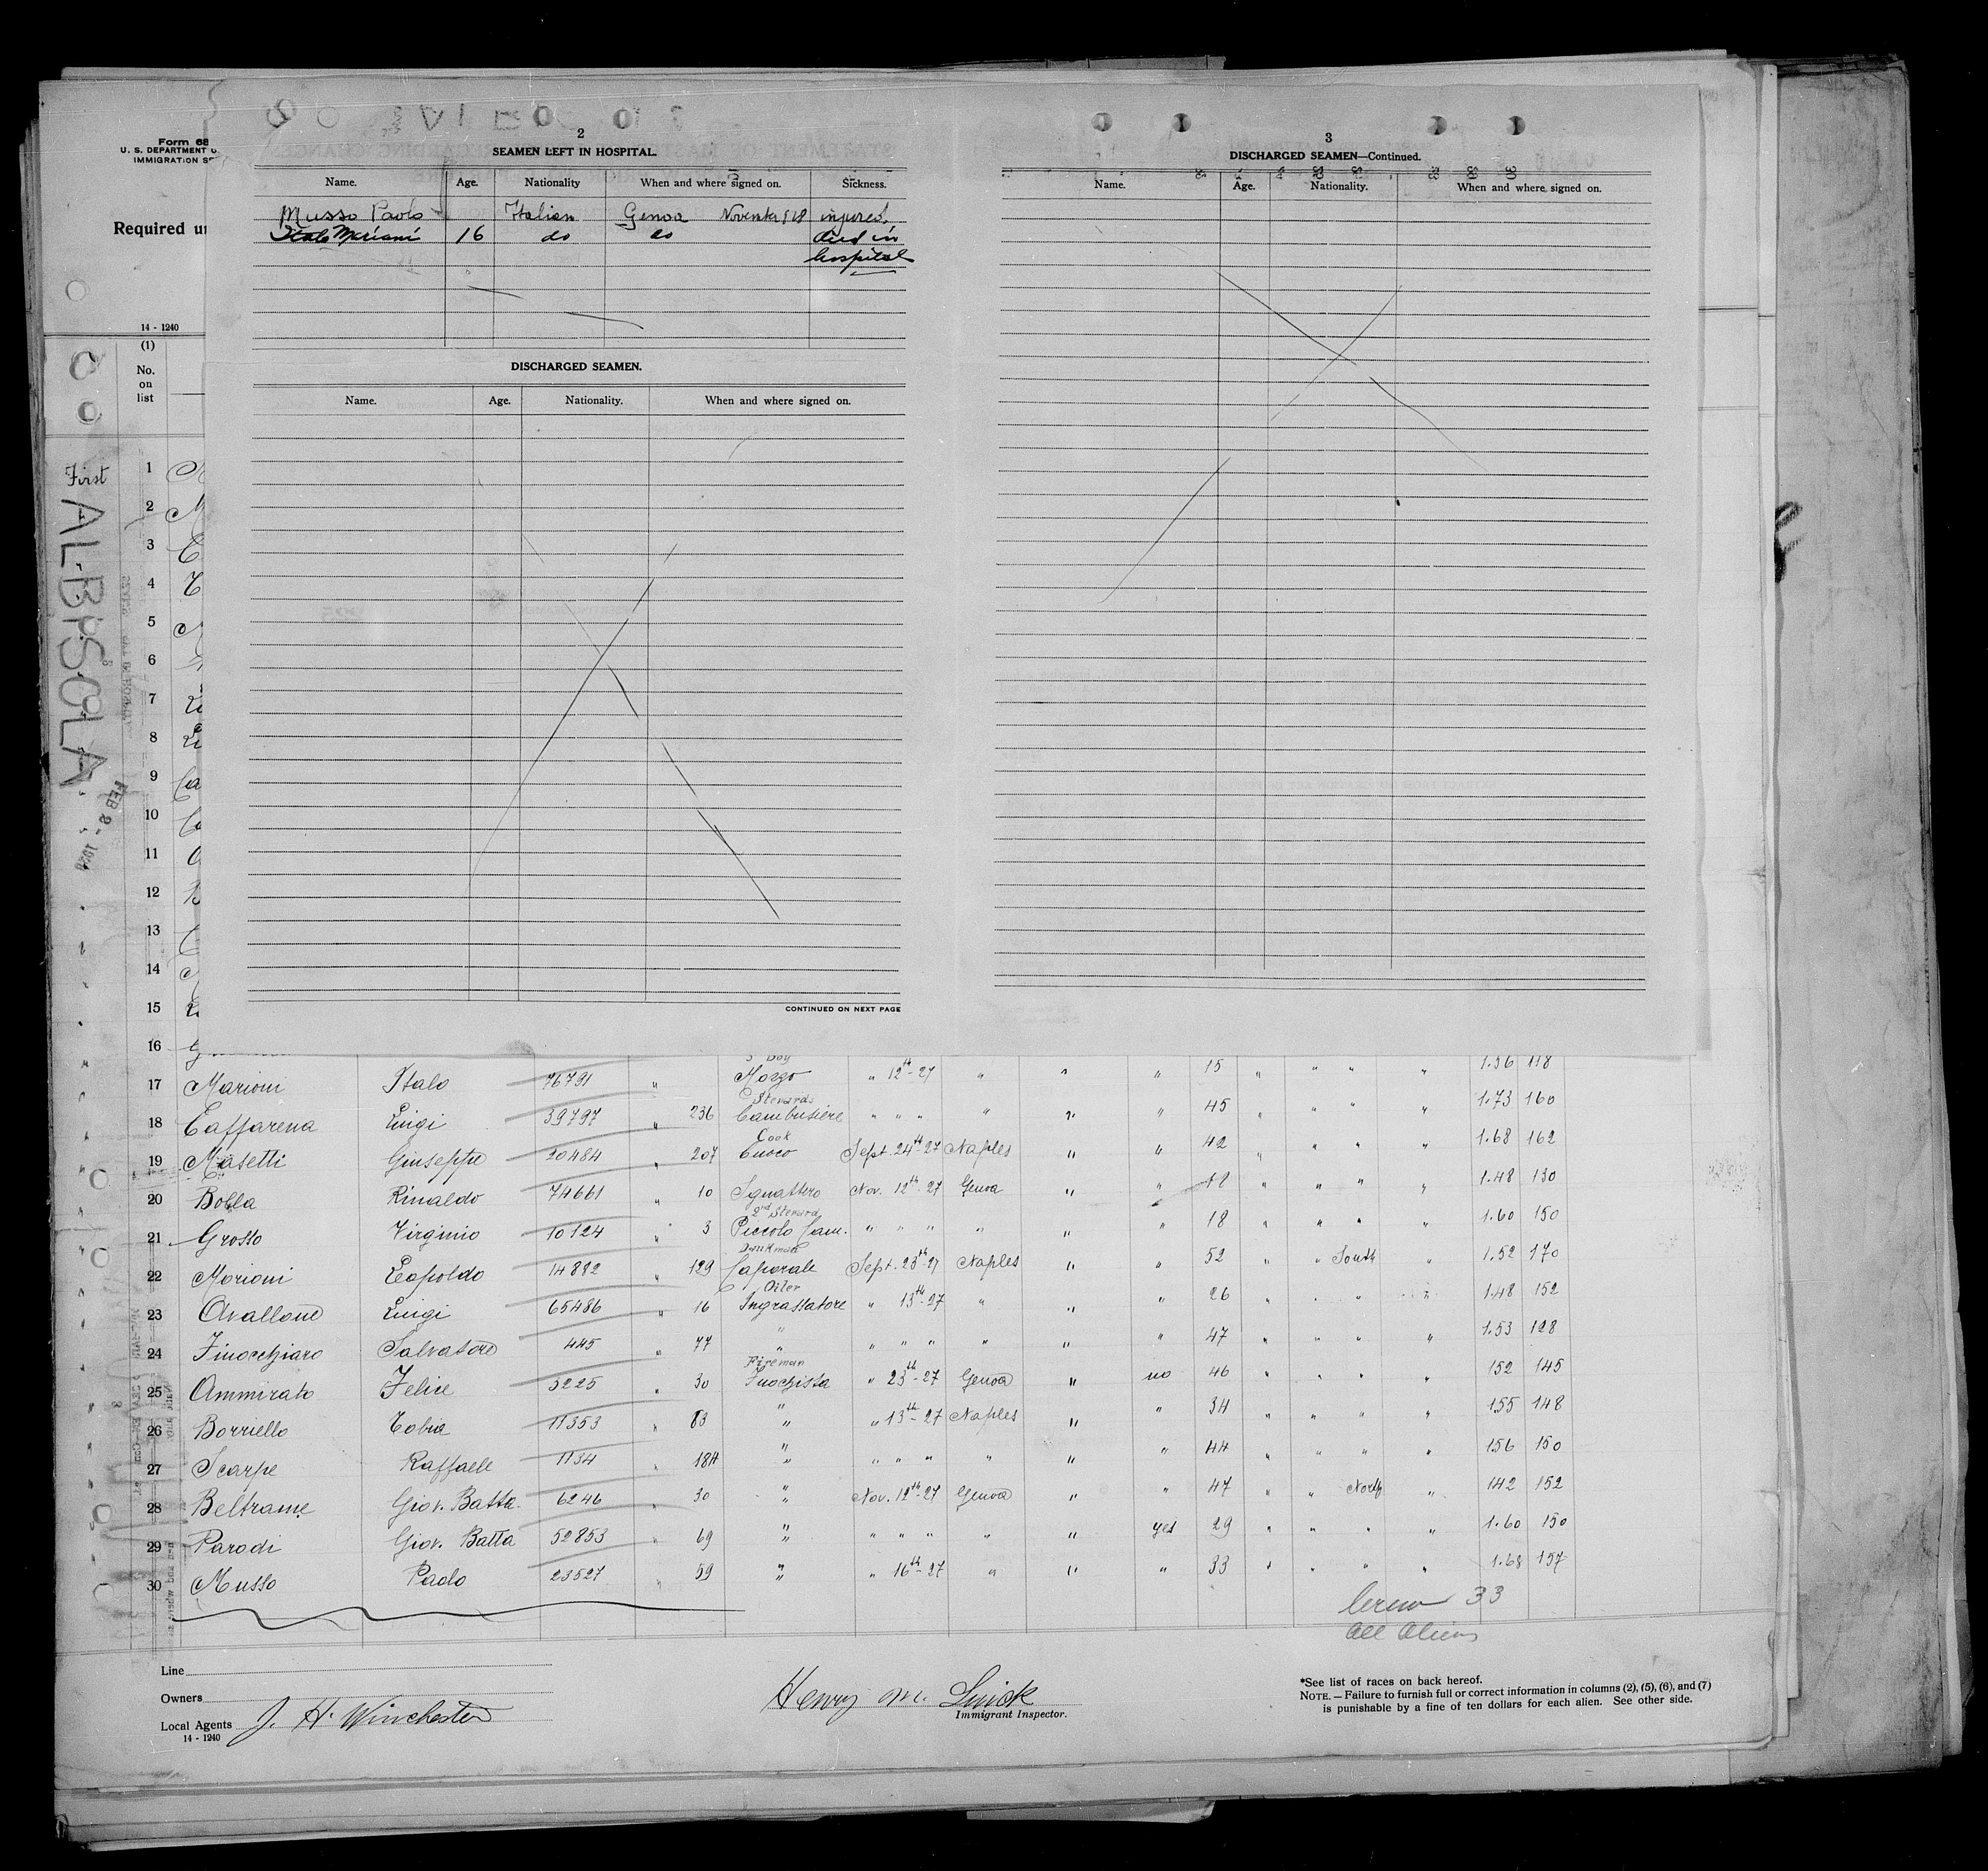 Form 68
U. S. DEPARTMENT O
IMMIGRATION SE
Required un
14 - 1240
(1)
No.
on
list
First
ALBISOLA
FEB 8 - 1928
2
SEAMEN LEFT IN HOSPITAL.
Name. Age. Nationality When and where signed on. Sickness.
Musso Paolo Italian Genoa injured.
Italo Mariani 16 do do died in
hospital
DISCHARGED SEAMEN.
Name. Age. Nationality. When and where signed on.
CONTINUED ON NEXT PAGE
3
DISCHARGED SEAMEN—Continued.
Name. Age. Nationality. When and where signed on.
1
2
3
4
5
6
7
8
9
10
11
12
13
14
15
16 Boy
17 Marioni Italo 76791 " Mozzo " 12th-27 " " " 15 " " " " 1.56 118
Stewards
18 Caffarena Luigi 39797 " 236 Cambusiere " " " " " " 45 " " " " 1.73 160
Cook
19 Masetti Giuseppe 20484 " 207 Cuoco Sept. 24th-27 Naples " " 42 " " " " 1.68 162
20 Bolla Rinaldo 74661 " 10 Sguattero Nov. 12th-27 Genoa " " 18 " " " " 1.48 130
2nd Steward
21 Grosso Virginio 10124 " 3 Piccolo Cam. " " " " " " 18 " " " " 1.60 150
Donkman
22 Morioni Leopoldo 14882 " 129 Caporale Sept. 23th-27 Naples " " 52 " " South " 1.52 170
Oiler
23 Avallone Luigi 65486 " 16 Ingrassatore " 13th-27 " " " 26 " " " " 1.48 152
24 Finocchiaro Salvatore 445 " 77 " " " " " " " 47 " " " " 1.53 128
Fireman
25 Ammirato Felice 5225 " 30 Fuochista " 23th-27 Genoa " no 46 " " " " 152 145
26 Borriello Tobia 11353 " 83 " " 13th-27 Naples " " 34 " " " " 155 148
27 Scarpe Raffaele 1134 " 184 " " " " " " " 44 " " " " 156 150
28 Beltrame Giov. Batta. 6246 " 30 " Nov. 12th-27 Genoa " " 47 " " North " 142 152
29 Parodi Giov. Batta 52853 " 69 " " " " " " yes 29 " " " " 1.60 150
30 Musso Paolo 23527 " 59 " " 16th-27 " " " 33 " " " " 1.68 157
Crew 33
All Aliens
Line
Owners
Local Agents J. H. Winchester
14 - 1240
Henry M.
Immigrant Inspector.
*See list of races on back hereof.
NOTE. — Failure to furnish full or correct information in columns (2), (5), (6), and (7)
is punishable by a fine of ten dollars for each alien. See other side.